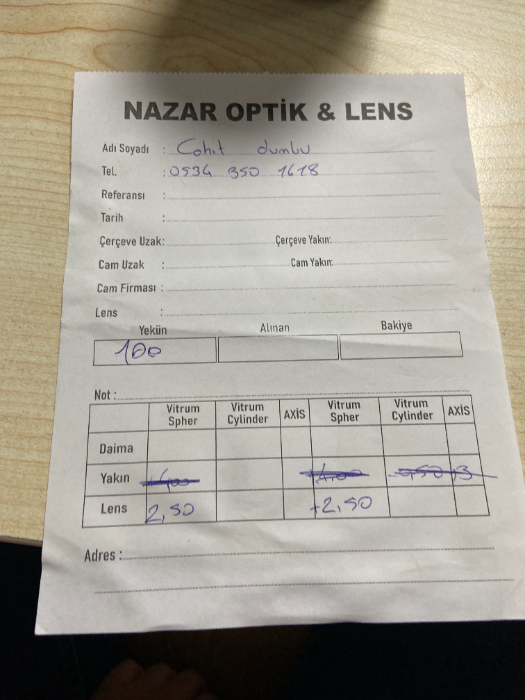 NAZAR OPTİK & LENS
Adı Soyadı : Cahit dumlu
Tel. : 0534 350 1618
Referansı :
Tarih :
Çerçeve Uzak: Çerçeve Yakın:
Cam Uzak : Cam Yakın:
Cam Firması :
Lens :
Yekün Alınan Bakiye
100
Not :
Vitrum Spher Vitrum Cylinder AXİS Vitrum Spher Vitrum Cylinder AXİS
Daima
Yakın
Lens 2,50 +2,50
Adres :